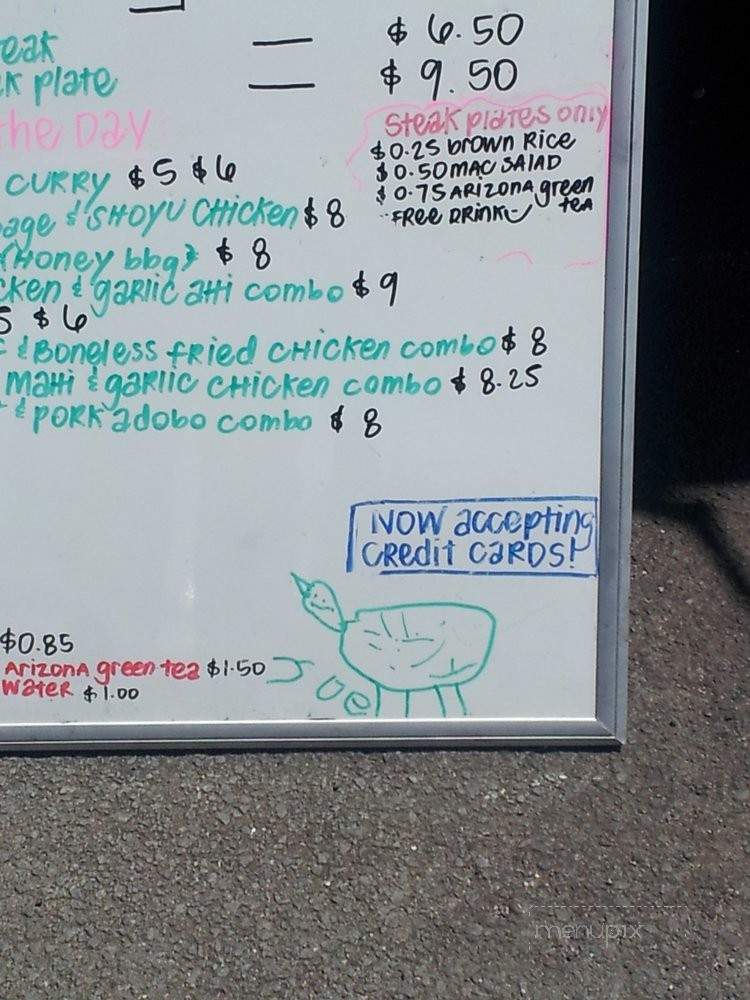 $ 6.50
plate $ 9.50
the DAY
Steak plates only
$0.25 brown Rice
$0.50 MAC SALAD
$0.75 ARIZONA green tea
FREE DRINK
CURRY $5 $6
& SHOYU CHICKEN $8
{Honey bbq} $8
& garlic combo $9
$6
& Boneless fried CHICKEN combo $8
MAHI & garlic CHICKEN combo $8.25
& PORK adobo combo $8
NOW accepting
CREDIT CARDS!
$0.85
ARIZONA green tea $1.50
WATER $1.00
Joe
menupix